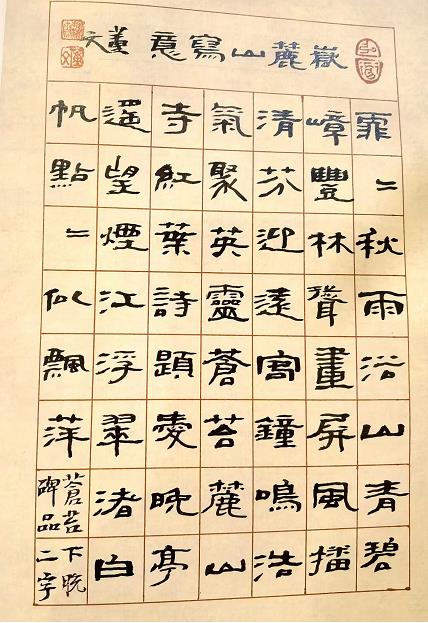 嶽麓山寫意 董文
霏〻秋雨浴山青碧
嶂豐林聳畫屏風播
清芬迎遠客鐘鳴浩
氣聚英靈蒼苔麓山
寺紅葉詩題愛晚亭
遙望煙江浮翠渚白
帆點〻似飄萍
蒼苔下脫
碑品二字